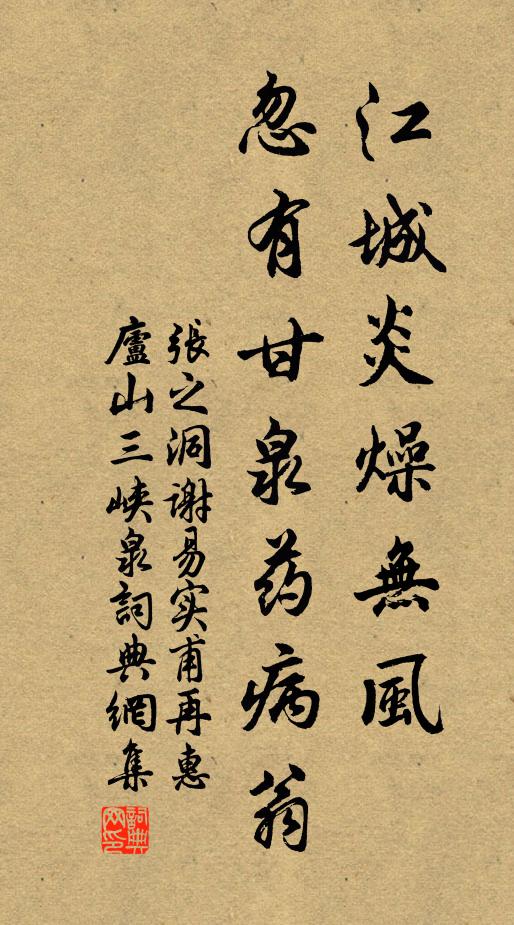 江城炎燥無風
忽有甘泉药病翁
張之洞謝易实甫再惠
廬山三峽泉詞典網集
詞典网印